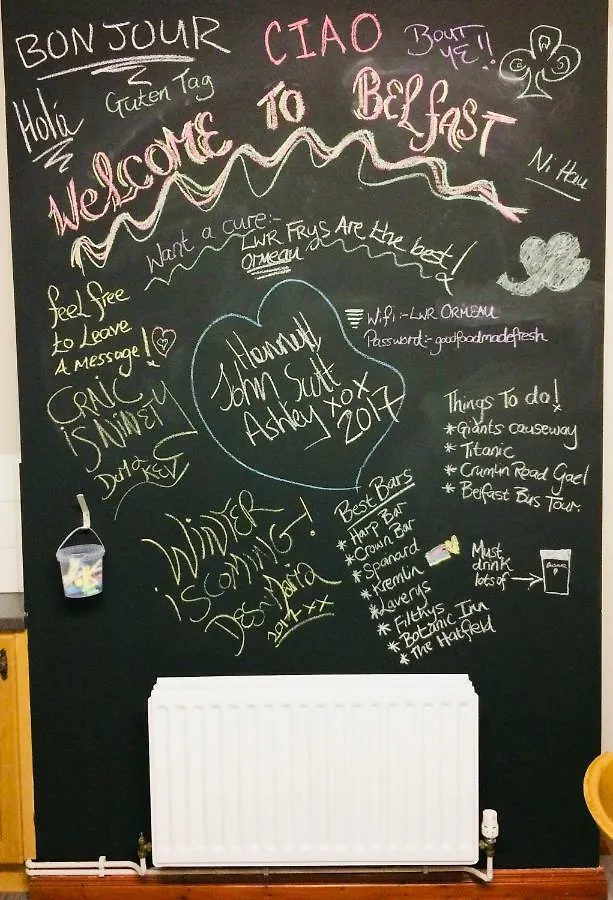 BONJOUR
CIAO
BOUT
YE!!
Hola
Guten Tag
WELCOME TO BELFAST
Ni Hau
Want a cure:-
LWR FRYS ARE the best!
ORMEAU
feel free
to Leave
A Message!
Wifi:- LWR ORMEAU
Password:- goodfoodmadefresh
Hannah
John Scott
Ashley xox
2017
CRAIC
iS NINETY
Things To do!
*Giants causeway
*Titanic
*Crumlin Road Gaol
*Belfast Bus Tour.
WINTER
iS COMING!
2017 xx
Best Bars
*Harp Bar
*Crown Bar
*Spanard
*Kremlin
*Laverys
*Filthys
*Botanic Inn
*The Hatfield
Must
drink
lots of →